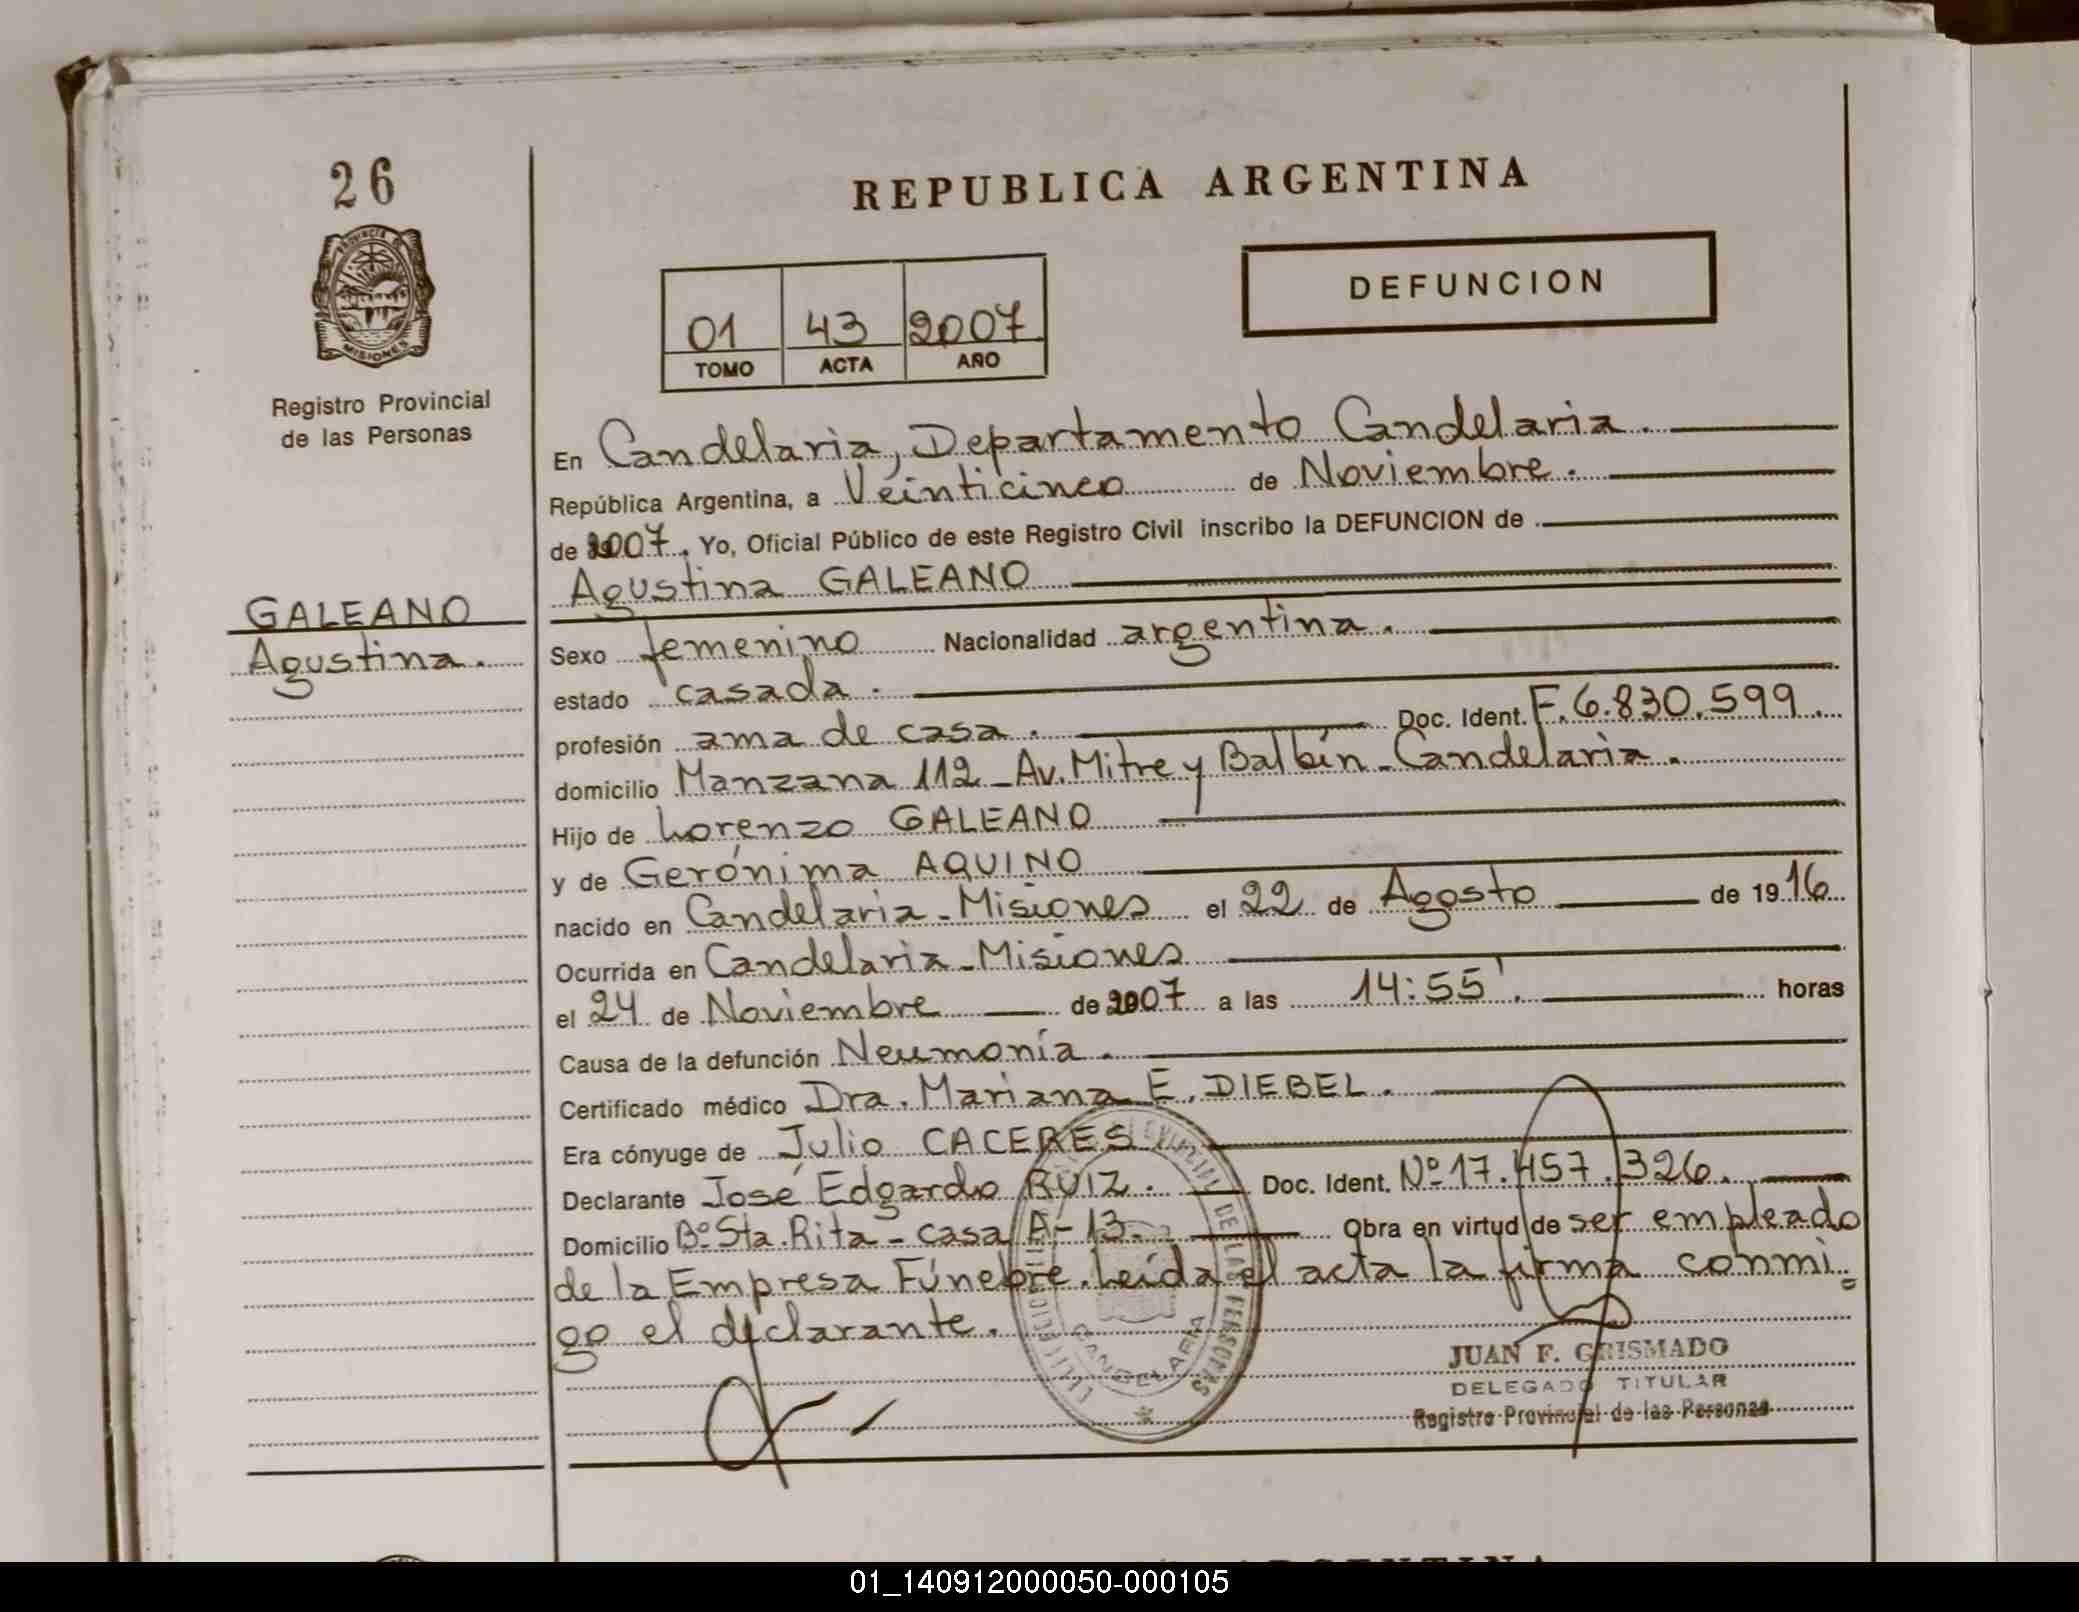 26
PROVINCIA DE
MISIONES
Registro Provincial
de las Personas
GALEANO
Agustina.
REPUBLICA ARGENTINA
DEFUNCION
01 43 2007
TOMO ACTA AÑO
En Candelaria, Departamento Candelaria.
República Argentina, a Veinticinco de Noviembre.
de 2007. Yo, Oficial Público de este Registro Civil inscribo la DEFUNCION de
Agustina GALEANO
Sexo femenino Nacionalidad argentina.
estado casada.
profesión ama de casa. Doc. Ident. F. 6.830.599.
domicilio Manzana 112 - Av. Mitre y Balbín - Candelaria.
Hijo de Lorenzo GALEANO
y de Gerónima AQUINO
nacido en Candelaria - Misiones el 22 de Agosto de 1916
Ocurrida en Candelaria - Misiones
el 24 de Noviembre de 2007 a las 14:55'. horas
Causa de la defunción Neumonía.
Certificado médico Dra. Mariana E. DIEBEL.
Era cónyuge de Julio CACERES
Declarante José Edgardo RUIZ. Doc. Ident. Nº 17.457.326.
Domicilio Bº Sta. Rita - casa A-13. Obra en virtud de ser empleado
de la Empresa Fúnebre. Leída el acta la firma conmi
go el declarante.
DE LAS PERSONAS
CANDELARIA
JUAN F. GRISMADO
DELEGADO TITULAR
Registro Provincial de las Personas
ARGENTINA
01_140912000050-000105